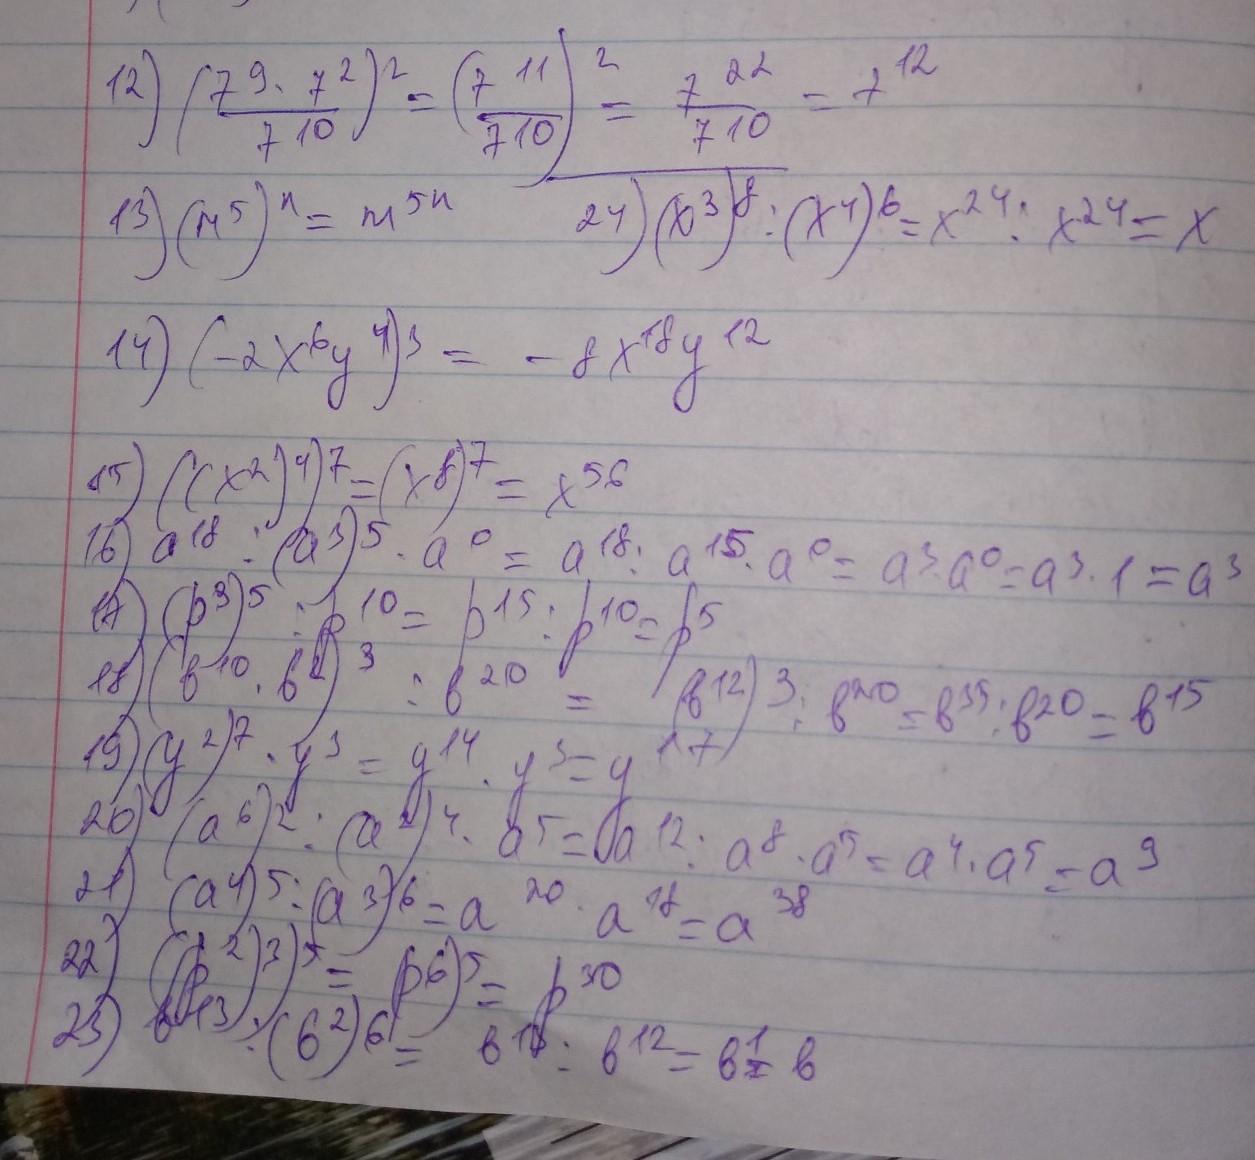 12) (7^9 · 7^2 / 7^10)^2 = (7^11 / 7^10)^2 = 7^22 / 7^10 = 7^12
13) (m^5)^n = m^5n 24) (x^3)^8 : (x^4)^6 = x^24 : x^24 = x
14) (-2x^6y^4)^3 = -8x^18y^12
15) ((x^2)^4)^7 = (x^8)^7 = x^56
16) a^18 : (a^3)^5 · a^0 = a^18 : a^15 · a^0 = a^3 · a^0 = a^3 · 1 = a^3
17) (p^3)^5 : p^10 = p^15 : p^10 = p^5
18) (b^10 · b^2)^3 : b^20 = (b^12)^3 : b^20 = b^35 : b^20 = b^15
19) (y^2)^7 · y^3 = y^14 · y^3 = y^17
20) (a^6)^2 : (a^2)^4 · a^5 = a^12 : a^8 · a^5 = a^4 · a^5 = a^9
21) (a^4)^5 : (a^3)^6 = a^20 · a^18 = a^38
22) ((p^2)^3)^5 = p^6)^5 = p^30
23) b^13 : (b^2)^6 = b^13 : b^12 = b^1 = b